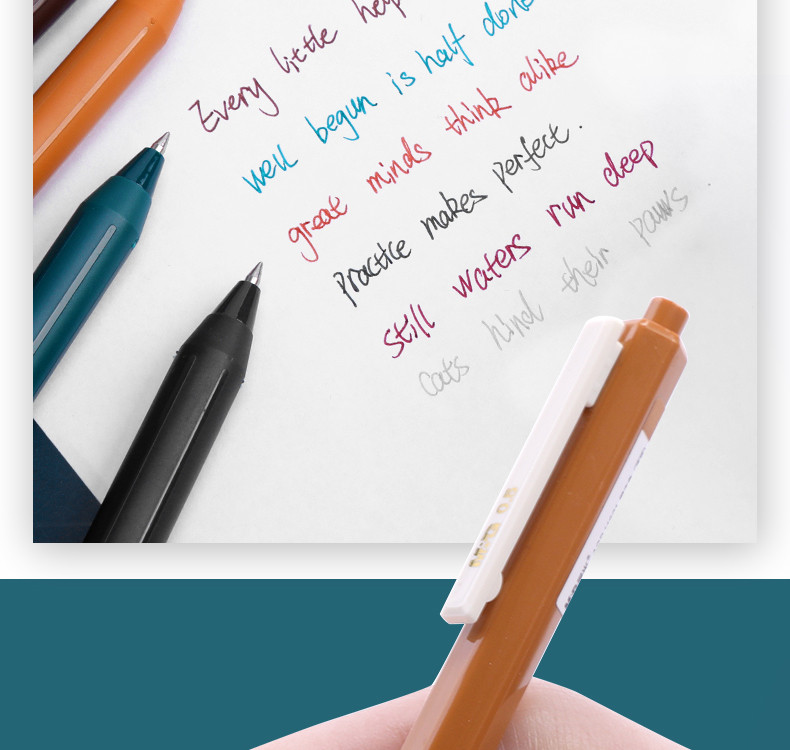 Every little help
well begun is half done
great minds think alike
practice makes perfect.
still waters run deep
cats hind their paws